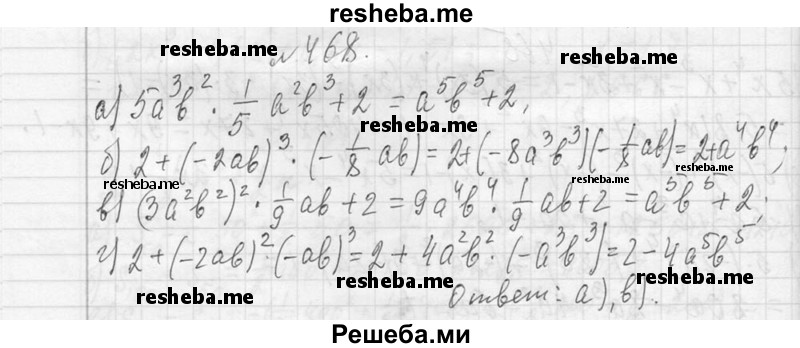 resheba.me
resheba.me № 468. resheba.me
а) 5a³b² · 1/5 a²b³ + 2 = a⁵b⁵ + 2,
resheba.me
б) 2 + (-2ab)³ · (-1/8 ab) = 2 + (-8a³b³)(-1/8 ab) = 2 + a⁴b⁴;
resheba.me resheba.me resheba.me
в) (3a²b²)² · 1/9 ab + 2 = 9a⁴b⁴ · 1/9 ab + 2 = a⁵b⁵ + 2;
resheba.me
г) 2 + (-2ab)² · (-ab)³ = 2 + 4a²b² · (-a³b³) = 2 - 4a⁵b⁵
resheba.me resheba.me
Ответ: а), в).
resheba.me
Решеба.ми